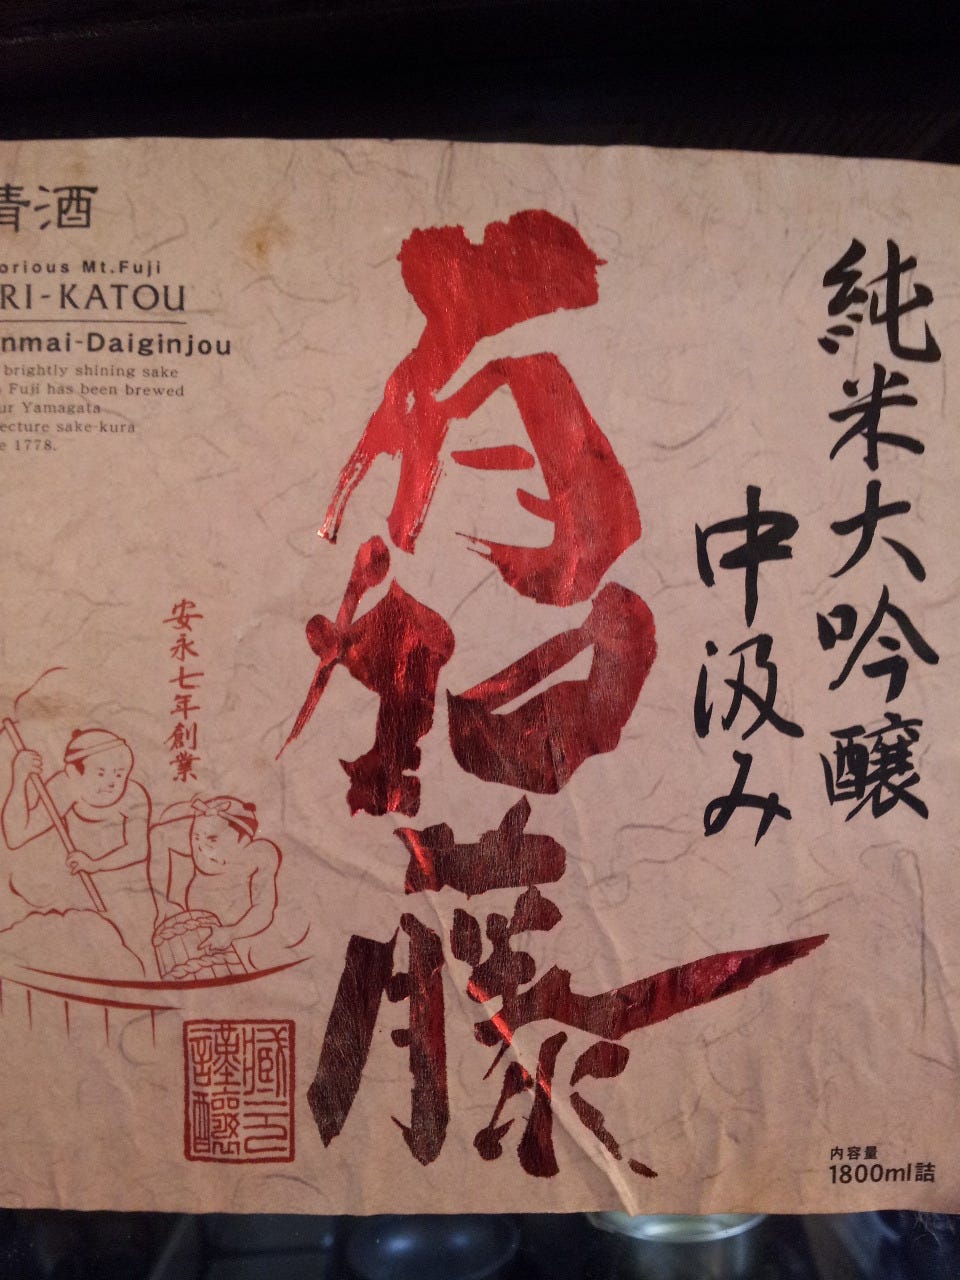 清酒
orious Mt.Fuji
RI-KATOU
nmai-Daiginjou
brightly shining sake
Fuji has been brewed
ur Yamagata
ecture sake-kura
e 1778.
純米大吟醸
中汲み
有加藤
安永七年創業
蔵元
謹醸
内容量
1800ml詰